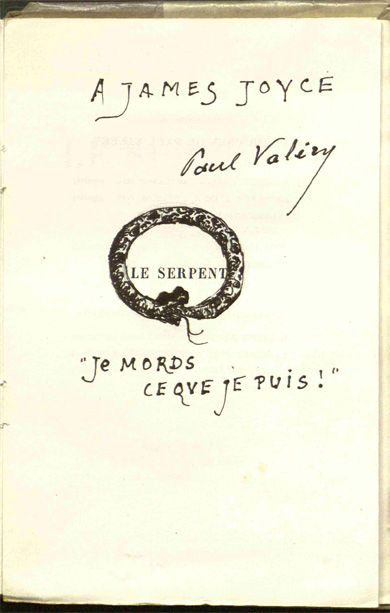 A JAMES JOYCE
Paul Valéry
LE SERPENT
"Je MORDS
CE QVE JE PUIS!"